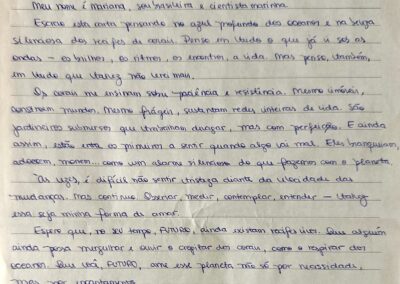 Meu nome é Mariana, sou brasileira e cientista marinha.
Escrevo esta carta pensando no azul profundo dos oceanos e na beleza
silenciosa dos recifes de corais. Penso em tudo o que já vi sob as
ondas — os brilhos, os ritmos, os encontros, a vida. Mas penso, também,
em tudo que talvez não verei mais.
Os corais me ensinam sobre paciência e resistência. Mesmo imóveis,
constroem mundos. Mesmo frágeis, sustentam redes inteiras de vida. São
jardineiros submersos que trabalham devagar, mas com perfeição. E ainda
assim, estão entre os primeiros a sentir quando algo vai mal. Eles branqueiam,
adoecem, morrem... como um alarme silencioso do que fazemos com o planeta.
Às vezes, é difícil não sentir tristeza diante da velocidade das
mudanças. Mas continuo. Observar, medir, contemplar, entender — talvez
essa seja minha forma de amar.
Espero que, no seu tempo, FUTURO, ainda existam recifes vivos. Que alguém
ainda possa mergulhar e ouvir o crepitar dos corais, como o respirar dos
oceanos. Que você, FUTURO, ame esse planeta não só por necessidade,
mas por encantamento.